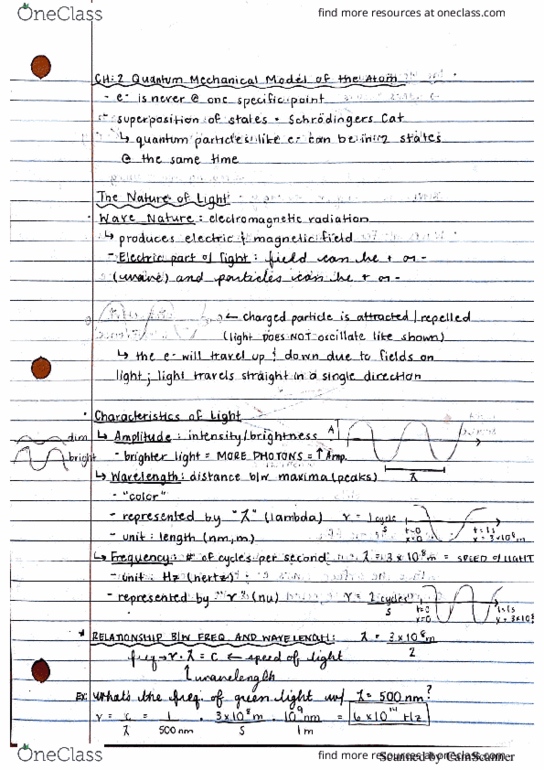 OneClass
find more resources at oneclass.com
CH:2 Quantum Mechanical Model of the Atom
- e⁻ is never @ one specific point
- superposition of states = Schrödingers Cat
↳ quantum particles like e⁻ can be in 2 states
@ the same time
The Nature of Light:
Wave Nature: electromagnetic radiation
↳ produces electric & magnetic field
- Electric part of light: field can be + or -
(wave) and particles can be + or -
← charged particle is attracted/repelled
(light DOES NOT oscillate like shown)
↳ the e⁻ will travel up & down due to fields on
light; light travels straight in a single direction
• Characteristics of Light
dim
↳ Amplitude: intensity/brightness
A
bright
- brighter light = MORE PHOTONS = ↑ Amp.
λ
↳ Wavelength: distance b/w maxima (peaks)
- "color"
- represented by "λ" (lambda)
ν = 1 cycle
s
t=0
x=0
t=1s
x=3×10⁸m
- unit: length (nm, m)
↳ Frequency: # of cycles per second
λ = 3×10⁸ m = SPEED OF LIGHT
- unit: Hz (hertz)
- represented by "ν" (nu)
ν = 2 cycles
s
t=0
x=0
t=1s
x=3×10⁸
* RELATIONSHIP B/W FREQ. AND WAVELENGTH:
λ = 3×10⁸m
2
freq → ν · λ = c ← speed of light
↑ wavelength
Ex: what's the freq. of green light w/ λ = 500 nm?
ν = c = 1 · 3×10⁸ m · 10⁹ nm = 6×10¹⁴ Hz
λ 500 nm s 1 m
OneClass
find more resources at oneclass.com
Scanned by CamScanner